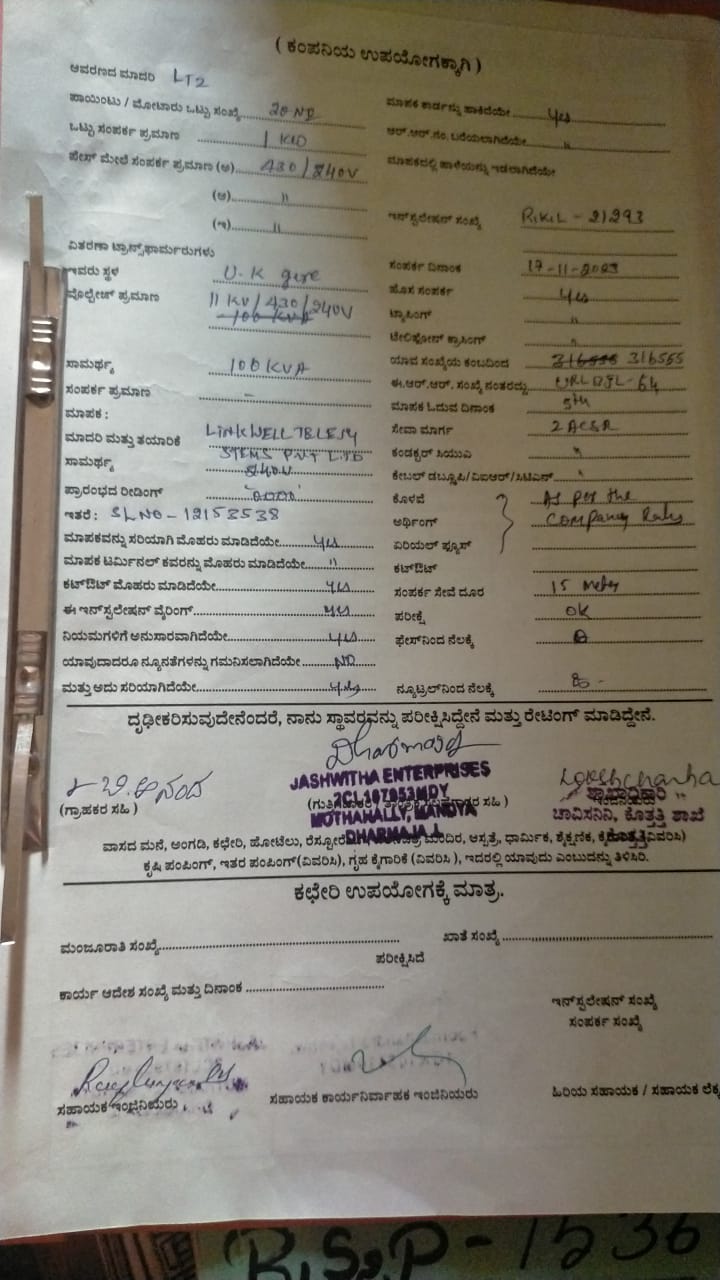 ( ಕಂಪನಿಯ ಉಪಯೋಗಕ್ಕಾಗಿ )
ಆವರಣದ ಮಾದರಿ LT2
ಪಾಯಿಂಟು / ಮೋಟಾರು ಒಟ್ಟು ಸಂಖ್ಯೆ
ಒಟ್ಟು ಸಂಪರ್ಕ ಪ್ರಮಾಣ
ಫೇಸ್ ಮೇಲೆ ಸಂಪರ್ಕ ಪ್ರಮಾಣ (ಅ) 430/240V
(ಆ) "
(ಇ) "
ವಿತರಣಾ ಟ್ರಾನ್ಸ್‌ಫಾರ್ಮರುಗಳು
ಇವರು ಸ್ಥಳ
ವೊಲ್ಟೇಜ್ ಪ್ರಮಾಣ 11 KV/430/240V
ಸಾಮರ್ಥ್ಯ 100 KVA
ಸಂಪರ್ಕ ಪ್ರಮಾಣ -
ಮಾಪಕ :
ಮಾದರಿ ಮತ್ತು ತಯಾರಿಕೆ LINKWELL TELESY
STEMS PVT LTD
ಸಾಮರ್ಥ್ಯ 240V
ಪ್ರಾರಂಭದ ರೀಡಿಂಗ್
ಇತರೆ : SLNO - 12153538
ಮಾಪಕವನ್ನು ಸರಿಯಾಗಿ ಮೊಹರು ಮಾಡಿದೆಯೇ yes
ಮಾಪಕ ಟರ್ಮಿನಲ್ ಕವರನ್ನು ಮೊಹರು ಮಾಡಿದೆಯೇ "
ಕಟ್‌ಔಟ್ ಮೊಹರು ಮಾಡಿದೆಯೇ yes
ಈ ಇನ್‌ಸ್ಟಲೇಷನ್ ವೈರಿಂಗ್ yes
ನಿಯಮಗಳಿಗೆ ಅನುಸಾರವಾಗಿದೆಯೇ yes
ಯಾವುದಾದರೂ ನ್ಯೂನತೆಗಳನ್ನು ಗಮನಿಸಲಾಗಿದೆಯೇ NO
ಮತ್ತು ಅದು ಸರಿಯಾಗಿದೆಯೇ yes
ಮಾಪಕ ಕಾರ್ಡನ್ನು ಹಾಕಿದೆಯೇ yes
ಆರ್.ಆರ್.ನಂ. ಬರೆಯಲಾಗಿದೆಯೇ "
ಮಾಪಕದಲ್ಲಿ ಹಾಳೆಯನ್ನು ಇಡಲಾಗಿದೆಯೇ
ಇನ್‌ಸ್ಟಲೇಷನ್ ಸಂಖ್ಯೆ
ಸಂಪರ್ಕ ದಿನಾಂಕ 17-11-2023
ಹೊಸ ಸಂಪರ್ಕ yes
ಟ್ಯಾಪಿಂಗ್ "
ಟೆಲಿಫೋನ್ ಕ್ರಾಸಿಂಗ್ "
ಯಾವ ಸಂಖ್ಯೆಯ ಕಂಬದಿಂದ 316555
ಈ.ಆರ್.ಆರ್. ಸಂಖ್ಯೆ ನಂತರದ್ದು
ಮಾಪಕ ಓದುವ ದಿನಾಂಕ 5th
ಸೇವಾ ಮಾರ್ಗ 2 ACSR
ಕಂಡಕ್ಟರ್ ಸಿಯುಎ "
ಕೇಬಲ್ ಡಬ್ಲ್ಯೂಪಿ/ವಿಐಆರ್/ಸಿಟಿಎಸ್ "
ಕೊಳವೆ As per the
ಅರ್ಥಿಂಗ್ COMPANY Rules
ಏರಿಯಲ್ ಫ್ಯೂಸ್
ಕಟ್‌ಔಟ್
ಸಂಪರ್ಕ ಸೇವೆ ದೂರ 15 meter
ಪರೀಕ್ಷೆ OK
ಫೇಸ್‌ನಿಂದ ನೆಲಕ್ಕೆ
ನ್ಯೂಟ್ರಲ್‌ನಿಂದ ನೆಲಕ್ಕೆ
ದೃಢೀಕರಿಸುವುದೇನೆಂದರೆ, ನಾನು ಸ್ಥಾವರವನ್ನು ಪರೀಕ್ಷಿಸಿದ್ದೇನೆ ಮತ್ತು ರೇಟಿಂಗ್ ಮಾಡಿದ್ದೇನೆ.
ಬಿ. ಆನಂದ
(ಗ್ರಾಹಕರ ಸಹಿ )
JASHWITHA ENTERPRISES
2CL187953MDY
MOTHAHALLY, MANDYA
DHARMAJA.L
ಶಾಖಾಧಿಕಾರಿ
ಚಾವಿಸನಿನಿ, ಕೊತ್ತತ್ತಿ ಶಾಖೆ
ಕೊತ್ತತ್ತಿ
ವಾಸದ ಮನೆ, ಅಂಗಡಿ, ಕಛೇರಿ, ಹೋಟೆಲು, ಮಂದಿರ, ಆಸ್ಪತ್ರೆ, ಧಾರ್ಮಿಕ, ಶೈಕ್ಷಣಿಕ, (ವಿವರಿಸಿ)
ಕೃಷಿ ಪಂಪಿಂಗ್, ಇತರ ಪಂಪಿಂಗ್(ವಿವರಿಸಿ), ಗೃಹ ಕೈಗಾರಿಕೆ (ವಿವರಿಸಿ ), ಇದರಲ್ಲಿ ಯಾವುದು ಎಂಬುದನ್ನು ತಿಳಿಸಿರಿ.
ಕಛೇರಿ ಉಪಯೋಗಕ್ಕೆ ಮಾತ್ರ.
ಮಂಜೂರಾತಿ ಸಂಖ್ಯೆ
ಖಾತೆ ಸಂಖ್ಯೆ
ಪರೀಕ್ಷಿಸಿದೆ
ಕಾರ್ಯ ಆದೇಶ ಸಂಖ್ಯೆ ಮತ್ತು ದಿನಾಂಕ
ಇನ್‌ಸ್ಟಲೇಷನ್ ಸಂಖ್ಯೆ
ಸಂಪರ್ಕ ಸಂಖ್ಯೆ
ಸಹಾಯಕ ಇಂಜಿನಿಯರು
ಸಹಾಯಕ ಕಾರ್ಯನಿರ್ವಾಹಕ ಇಂಜಿನಿಯರು
ಹಿರಿಯ ಸಹಾಯಕ / ಸಹಾಯಕ
R.S.P - 1536